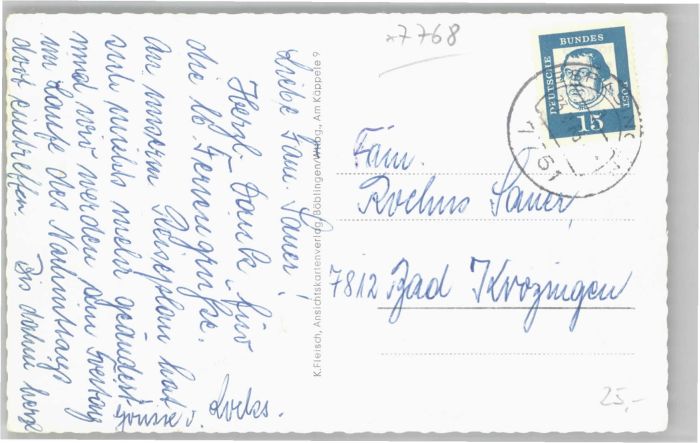 Liebe Fam. Sauer!
Herzl. Dank für
die lb. Feriengrüße.
An unserm Reiseplan hat
sich nichts mehr geändert
und wir werden am Freitag
im Laufe des Nachmittags
dort eintreffen. Bis dahin herzl.
Grüsse v. Locks.
K. Fiersch, Ansichtskartenverlag, Böblingen/Wttbg., Am Käppele 9
*7768
DEUTSCHE BUNDES POST
15
Fam.
Rochus Sauer,
7812 Bad Krozingen
25,-